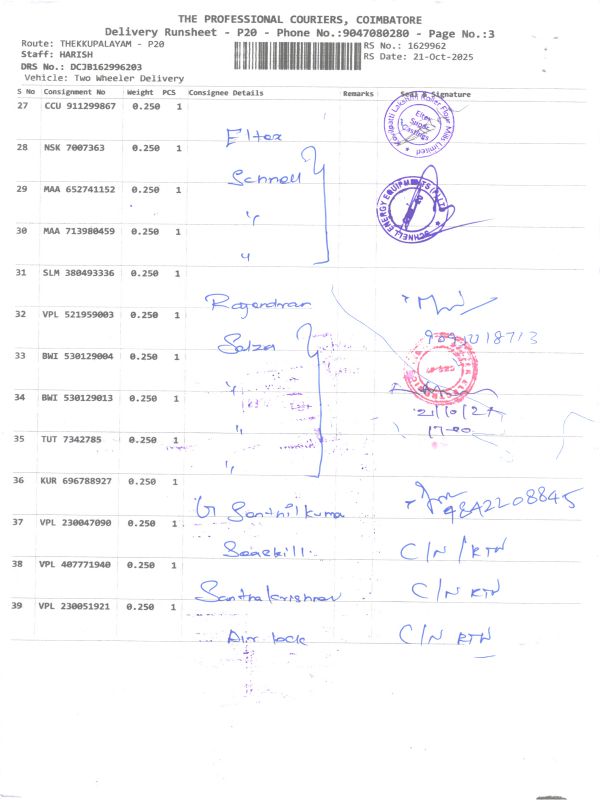 THE PROFESSIONAL COURIERS, COIMBATORE
Delivery Runsheet - P20 - Phone No.:9047080280 - Page No.:3
Route: THEKKUPALAYAM - P20
RS No.: 1629962
Staff: HARISH
RS Date: 21-Oct-2025
DRS No.: DCJB162996203
Vehicle: Two Wheeler Delivery
S No Consignment No Weight PCS Consignee Details Remarks Seal & Signature
27 CCU 911299867 0.250 1
Eltex
28 NSK 7007363 0.250 1
Schnell
29 MAA 652741152 0.250 1
"
SCHNELL ENERGY EQUIPMENTS (P) LTD
30 MAA 713980459 0.250 1
"
31 SLM 380493336 0.250 1
Rajendran
32 VPL 521959003 0.250 1
Salza
33 BWI 530129004 0.250 1
"
34 BWI 530129013 0.250 1
"
35 TUT 7342785 0.250 1
"
36 KUR 696788927 0.250 1
G Senthilkuma
9842208845
37 VPL 230047090 0.250 1
C/N/RTN
38 VPL 407771940 0.250 1
C/N RTN
39 VPL 230051921 0.250 1
Air lock C/N RTN